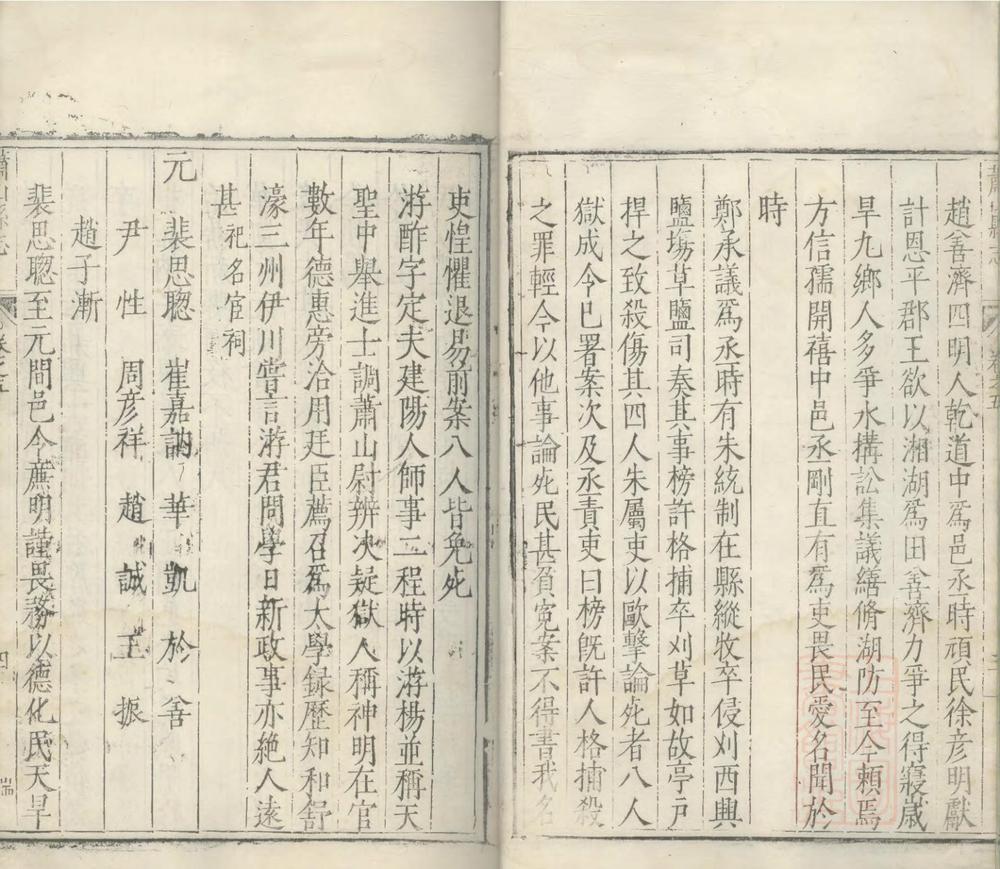 趙善濟四明人乾道中爲邑丞時頑民徐彦明獻
計恩平郡王欲以湘湖爲田善濟力爭之得寢歲
旱九鄉人多爭水搆訟集議繕脩湖防至今賴焉
方信孺開禧中邑丞剛直有爲吏畏民愛名聞於
時
鄭承議爲丞時有朱統制在縣縱牧卒侵刈西興
鹽塲草鹽司奏其事榜許格捕卒刈草如故亭戸
捍之致殺傷其四人朱屬吏以歐擊論死者八人
獄成令已署案次及丞責吏曰榜旣許人格捕殺
之罪輕今以他事論死民甚負寃案不得書我名
吏惶懼退易前案八人皆免死
游酢字定夫建陽人師事二程時以游楊並稱天
聖中舉進士調蕭山尉辨决疑獄人稱神明在官
數年德惠旁洽用廷臣薦召爲太學録歷知和舒
濠三州伊川嘗言游君問學日新政事亦絶人遠
甚祀名宦祠
元 裴思聦 崔嘉訥 華凱 於善
尹性 周彦祥 趙誠 王振
趙子漸
裴思聦至元間邑令蔗明謹畏務以德化民天旱